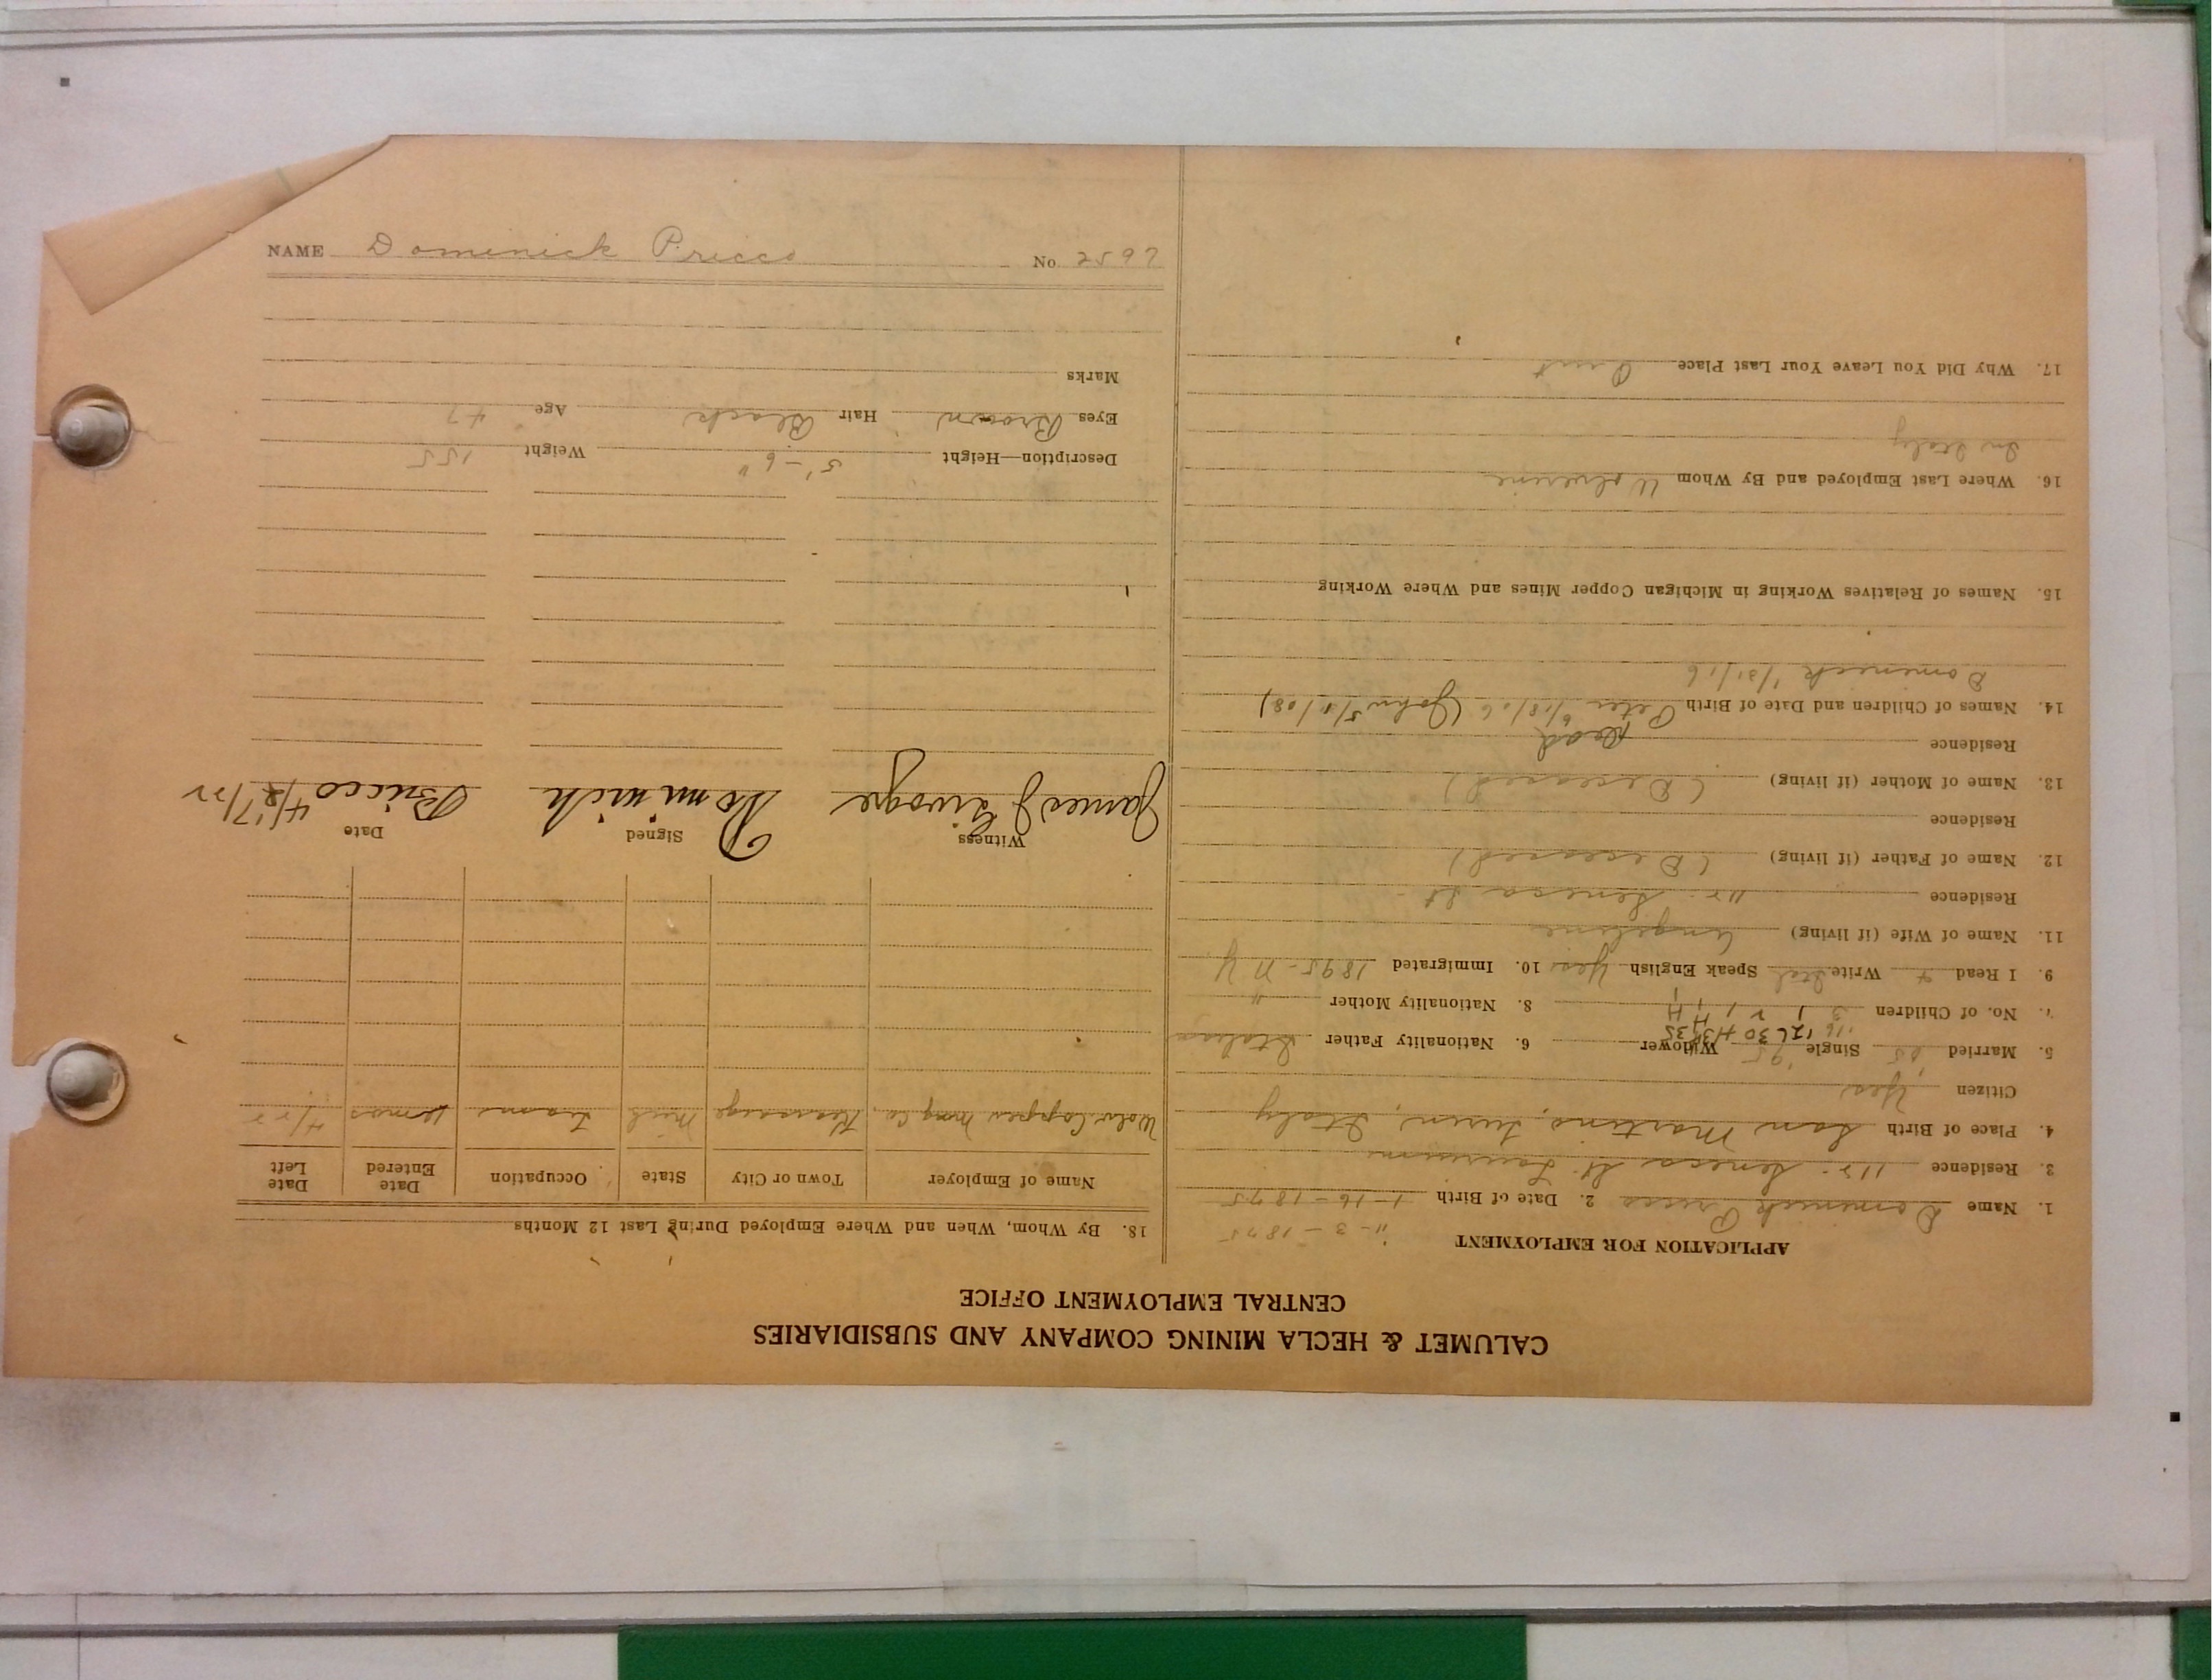 CALUMET & HECLA MINING COMPANY AND SUBSIDIARIES
CENTRAL EMPLOYMENT OFFICE
APPLICATION FOR EMPLOYMENT
11-3-1875
1. Name Dominick Pricco 2. Date of Birth 1-16-1875
3. Residence Seneca St. Laurium
4. Place of Birth San Martino, Turin, Italy
Citizen Yes
5. Married Single Widower 6. Nationality Father Italian
7. No. of Children 3 8. Nationality Mother "
9. I Read + Write Ital Speak English Yes 10. Immigrated 1895-N Y
11. Name of Wife (if living) Angeline
Residence Seneca St.
12. Name of Father (if living) (Deceased)
Residence
13. Name of Mother (if living) (Deceased)
Residence Dead
14. Names of Children and Date of Birth Peter 6/18/06 (John 5/11/08)
Domenick 1/31/16
15. Names of Relatives Working in Michigan Copper Mines and Where Working
16. Where Last Employed and By Whom Wolverine
In Italy
17. Why Did You Leave Your Last Place Quit
18. By Whom, When and Where Employed During Last 12 Months
Name of Employer Town or City State Occupation Date Entered Date Left
Wolv. Copper Mng Co. Kearsarge Mich 4/22
Witness Signed Date
James J Dominick Pricco 4/27/22
Description—Height 5'-6" Weight 155
Eyes Brown Hair Black Age 47
Marks
NAME Dominick Pricco No. 2597